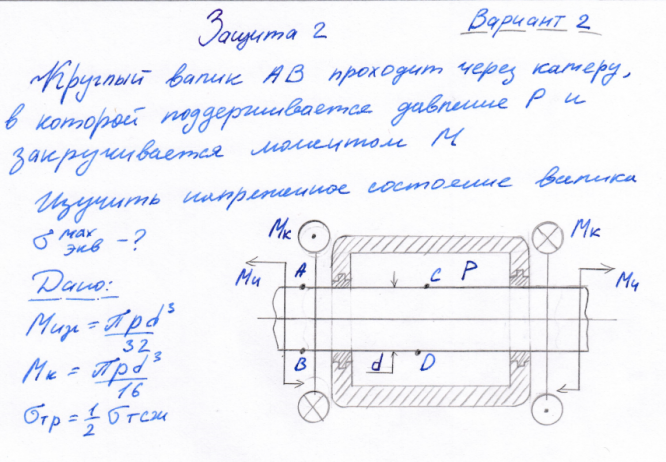 Защита 2
Вариант 2
Круглый валик АВ проходит через камеру,
в которой поддерживается давление Р и
закручивается моментом М
Изучить напряженное состояние валика
σ экв max - ?
Дано:
Mиз = πpd³/32
Mк = πpd³/16
σтр = 1/2 σтсж
Mк
Mк
Mи
Mи
A
C
P
B
d
D